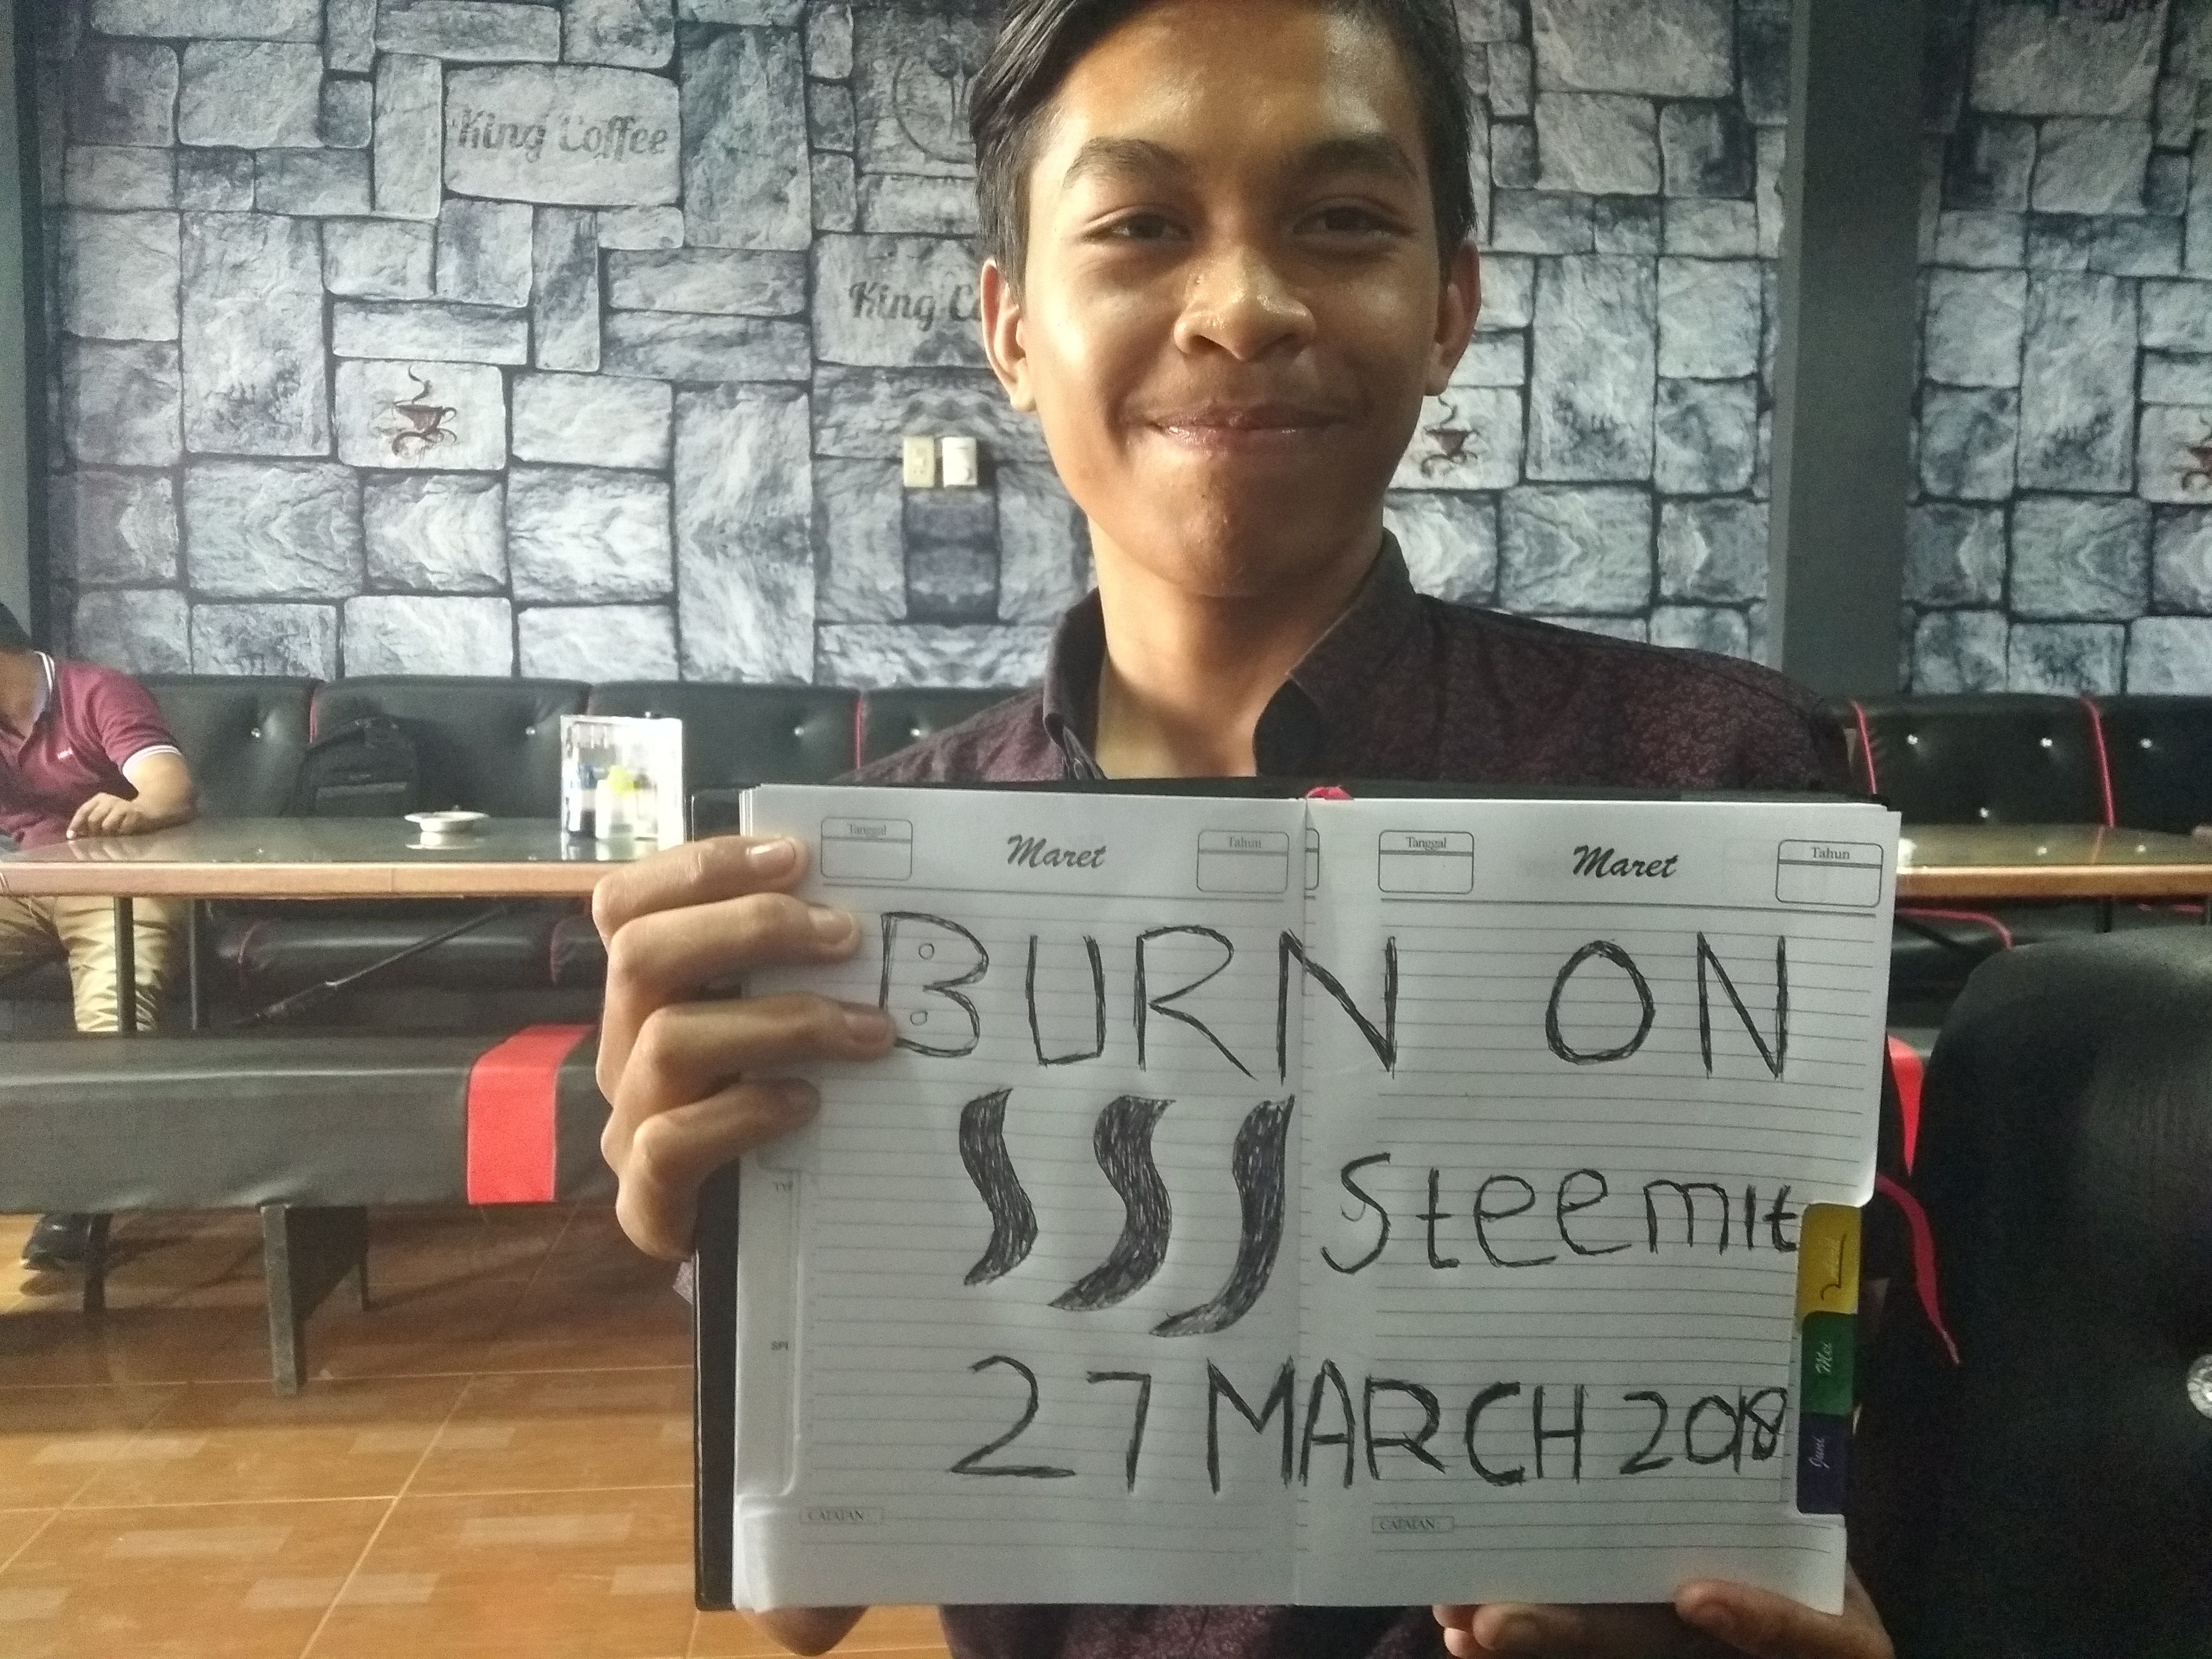 King Coffee
King Co
Tanggal Maret Tahun Tanggal Maret Tahun
BURN ON
Steemit
27 MARCH 2018
Mei
Juni
CATATAN: CATATAN: